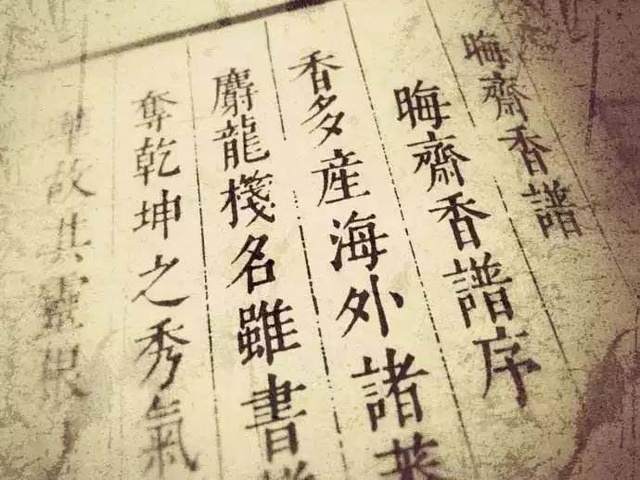 晦齋香譜
晦齋香譜序
香多產海外諸
麝龍棧名雖書
奪乾坤之秀氣
華故其靈根